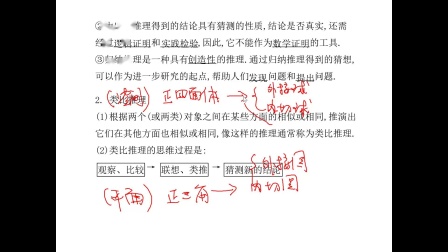 推理得到的结论具有猜测的性质,结论是否真实,还需
逻辑证明和实践检验,因此,它不能作为数学证明的工具.
③ 理是一种具有创造性的推理.通过归纳推理得到的猜想,
可以作为进一步研究的起点,帮助人们发现问题和提出问题.
正四面体 外接球
内切球
2. 类比推理
(1)根据两个(或两类)对象之间在某些方面的相似或相同,推演出
它们在其他方面也相似或相同,像这样的推理通常称为类比推理.
(2)类比推理的思维过程是:
观察、比较→联想、类推→猜测新的结论
(平面) 正三角 外接圆
内切圆